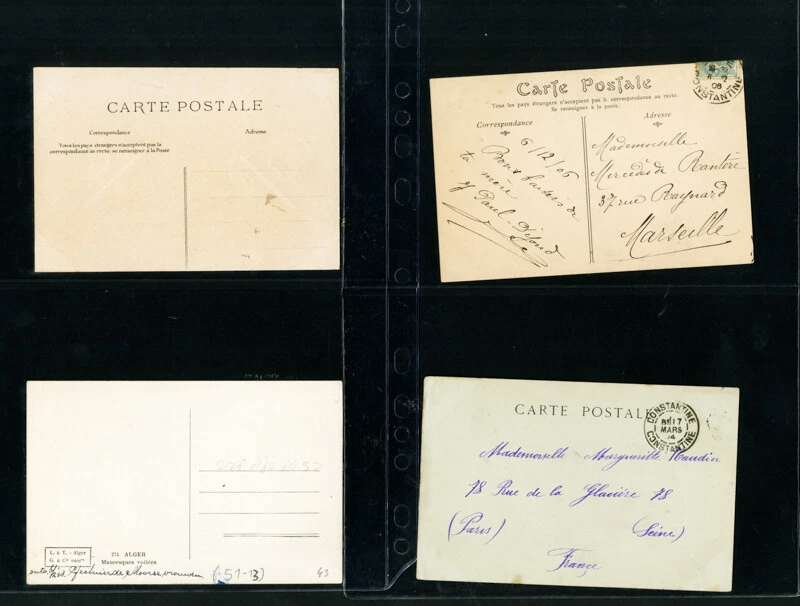 CARTE POSTALE
Correspondance
Adresse
Tous les pays étrangers n'acceptent pas la
correspondance au recto, se renseigner à la Poste
Carte Postale
Tous les pays étrangers n'acceptent pas la correspondance au recto.
Se renseigner à la poste.
Correspondance
Adresse
CONSTANTINE
06
6/12/06
Bons baisers de
ta mère
Paul
Mademoiselle
Mercédès de Rantère
37 rue Raynard
Marseille
L. & Y. - Alger
G. & Cie
274 ALGER
Mauresques voilées
Moorse vrouwen
(+51-13)
43
CARTE POSTALE
CONSTANTINE
17
MARS
04
CONSTANTINE
Mademoiselle Marguerite Naudin
78 Rue de la Glacière 78
(Paris) (Seine)
France